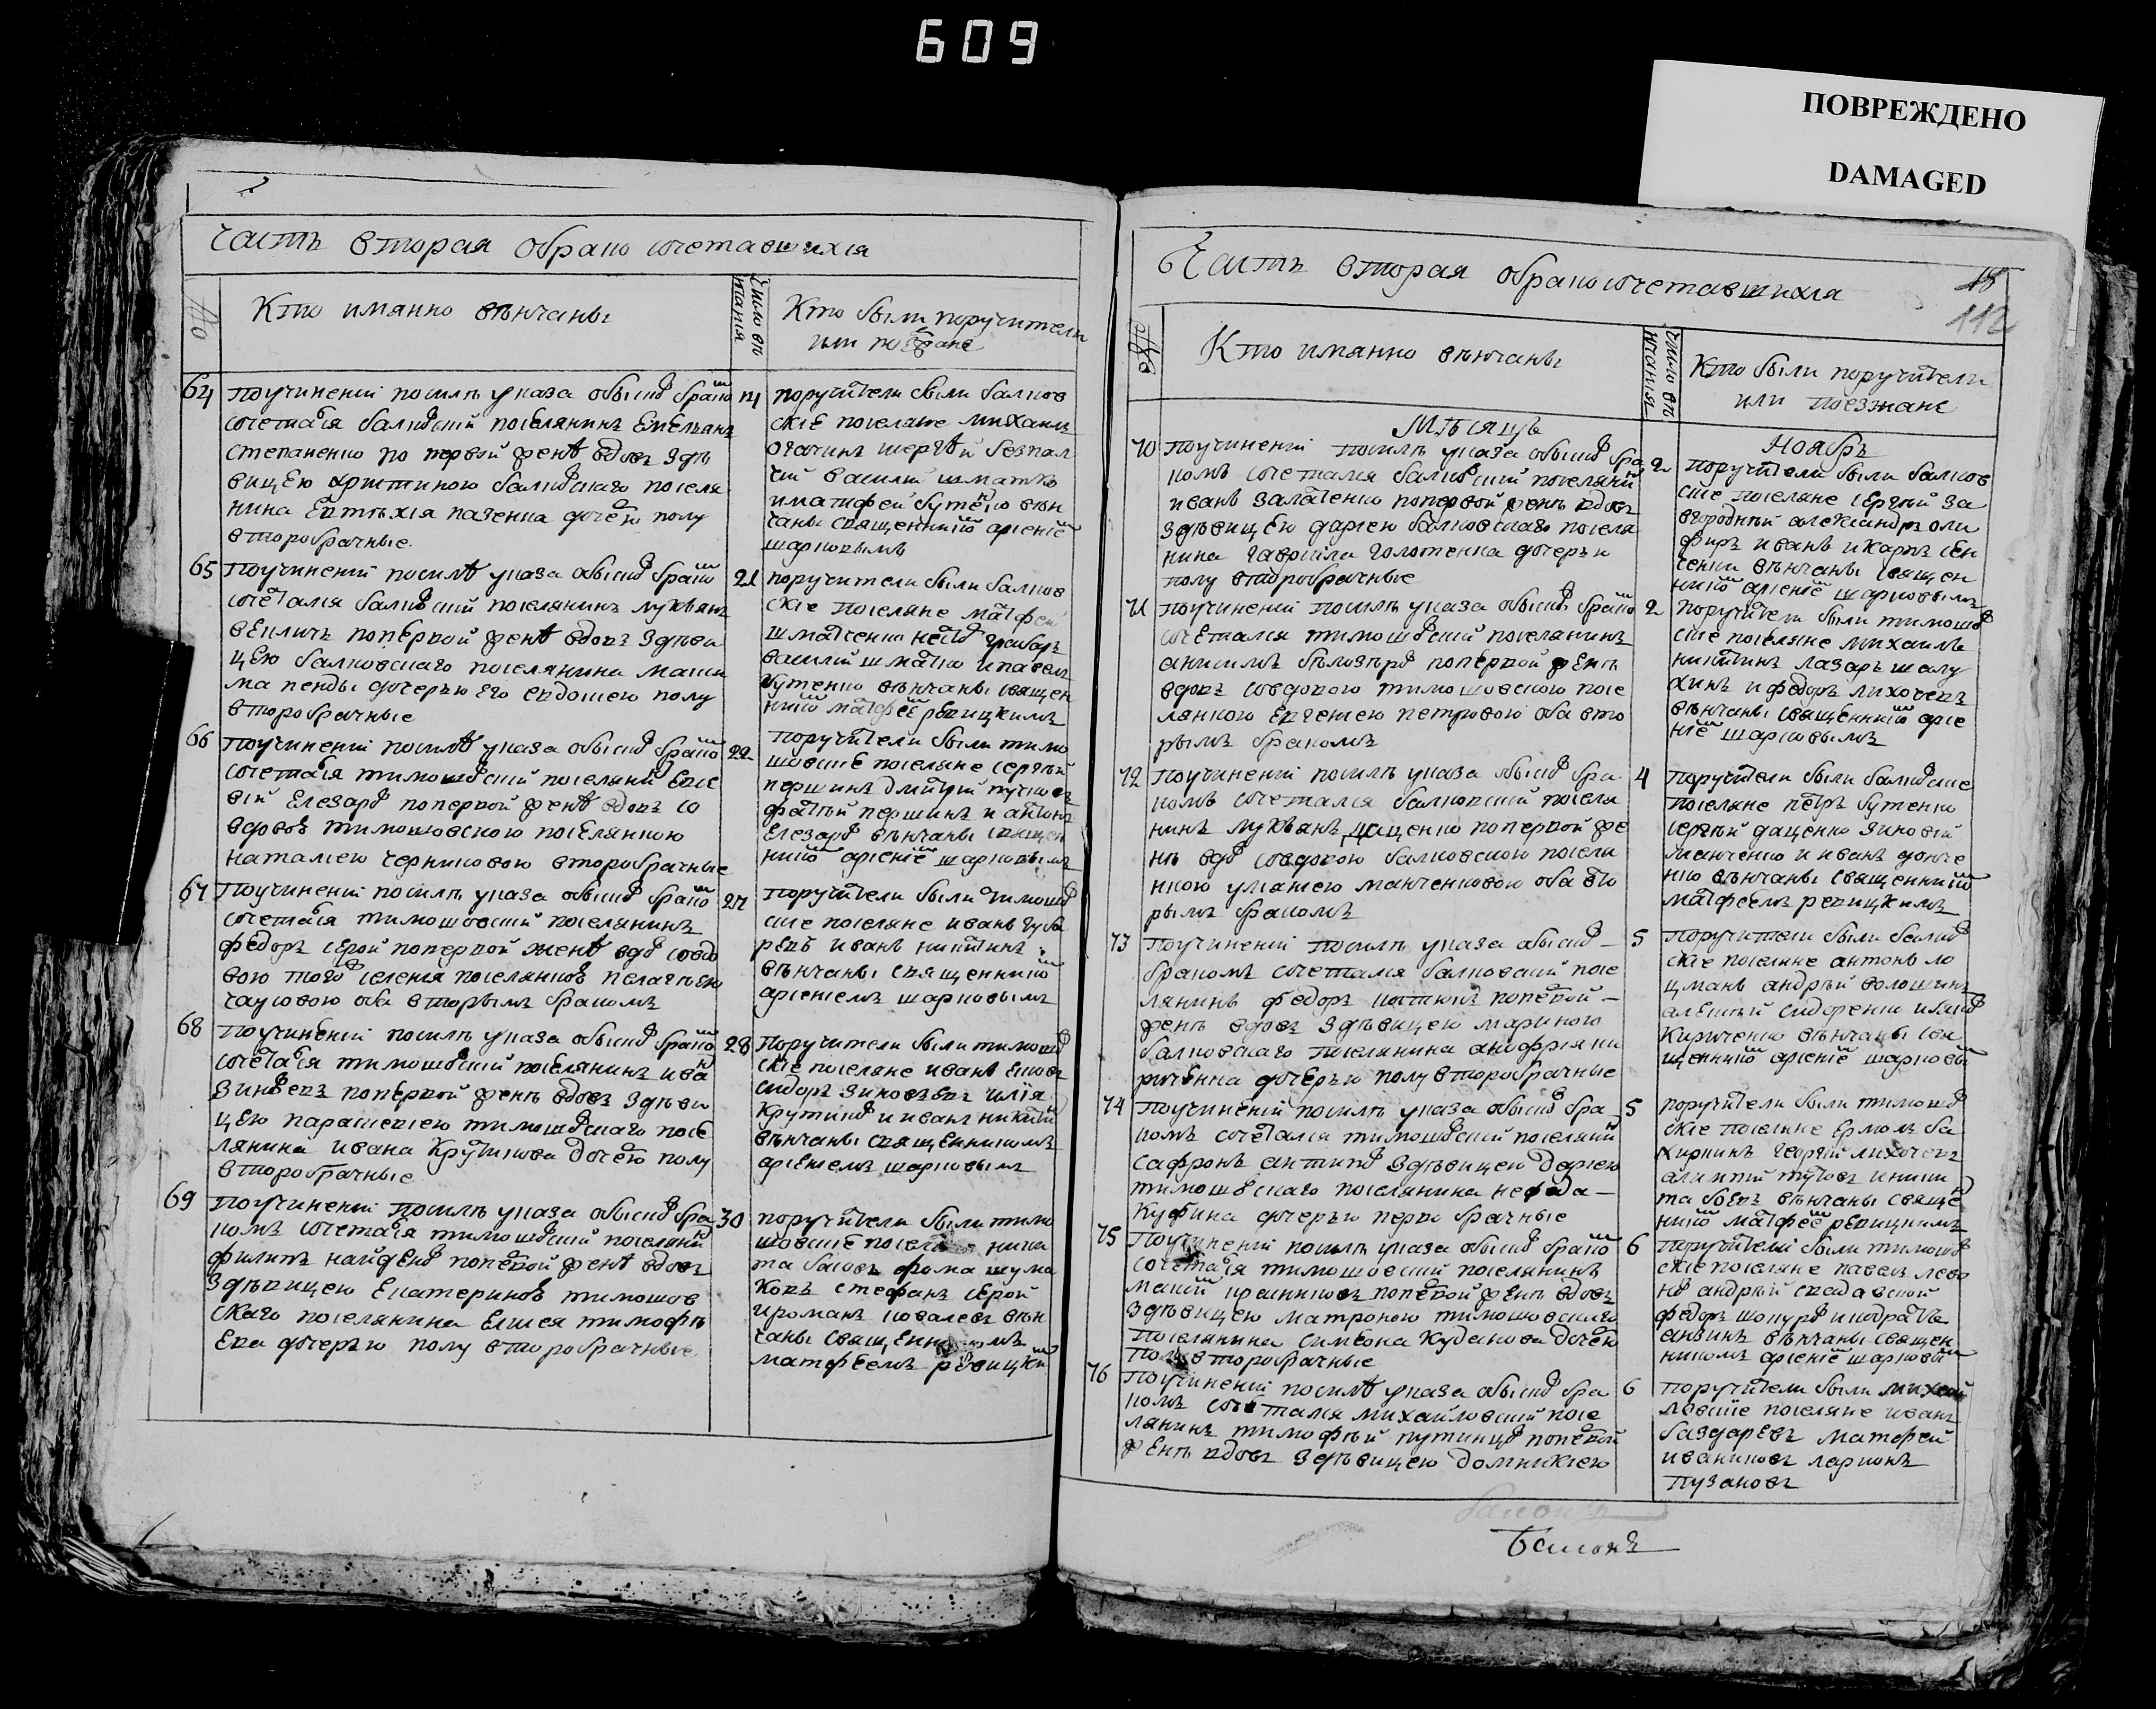 609
ПОВРЕЖДЕНО
DAMAGED
Часть вторая обрако сочетавшихся
№
Кто имянно венчаны
Число венчания
Кто были поручители
или поезжане
64
поучинении посилѣ указа обыска браком
сочетался балковский поселянинъ Емельянъ
степаненко по первой женѣ вдовъ здѣ
вицею христиною балковскаго поселя
нина дочерью полу
второбрачные
14
поручители были балков
скіе поселяне михаилъ
василий шматко
и матфей бутенко вѣн
чаны священникомъ арсениемъ
шарковымъ
65
Поучинении посилѣ указа обыска браком
сочетался балковский поселянинъ лукьянъ
попервой женѣ вдовъ здѣви
цею балковскаго поселянина макси
ма пенды дочерью его евдокиею полу
второбрачные
21
поручители были балков
скіе поселяне матфей
шматченко
василий шматко и павелъ
бутенко вѣнчаны священ
никомъ матфеемъ ревицкимъ
66
Поучинении посилѣ указа обыска браком
сочетался тимошовский поселянинъ
елезаров попервой женѣ вдовъ со
вдовою тимошовскою поселянкою
наталиею черниковою второбрачные
22
Поручители были тимо
шовские поселяне сергѣй
першинъ дмитрий
першинъ и антонъ
елезаров вѣнчаны священ
никомъ арсениемъ шарковымъ
67
Поучинении посилѣ указа обыска браком
сочетался тимошовский поселянинъ
федоръ серой попервой женѣ вдов совдо
вою того селения поселянкою пелагѣею
чаусовою оба вторымъ бракомъ
27
Поручители были тимошов
ские поселяне иванъ губа
ревъ иванъ никитинъ
вѣнчаны священникомъ
арсениемъ шарковымъ
68
Поучинении посилѣ указа обыска браком
сочетался тимошовский поселянинъ иван
зиновевъ попервой женѣ вдовъ здѣви
цею парасковиею тимошовскаго посе
лянина ивана Крутикова дочерью полу
второбрачные
28
Поручители были тимошов
скіе поселяне иванъ
сидоръ зиновьевъ илія
крутиков и иванъ никитин
вѣнчаны священникомъ
арсениемъ шарковымъ
69
Поучинении посилѣ указа обыска бра
комъ сочетался тимошовский поселянин
филипъ найденов попервой женѣ вдовъ
здѣвицею Екатериною тимошов
скаго поселянина Елисея тимофѣ
ева дочерью полу второбрачные
30
поручители были тимо
шовские поселяне ники
та басовъ фома шума
ковъ стефанъ серой
и романъ ковалевъ вѣн
чаны священникомъ
матфеемъ ревицким
Часть вторая обракосочетавшихся
112
Кто имянно вѣнчаны
Число венчания
Кто были поручители
или поезжане
Мѣсяцъ
Ноябрь
70
Поучинении посилѣ указа обыска бра
комъ сочетался балковский поселянин
иванъ залатенко попервой женѣ вдовъ
здѣвицею дариею балковскаго поселя
нина гавриила голотенка дочерью
полу второбрачные
2
Поручители были балков
ские поселяне сергѣй за
вгородный александръ оли
фиръ иванъ и карпъ сен
ченки вѣнчаны священ
никомъ арсениемъ шарковымъ
71
Поучинении посилѣ указа обыска браком
сочетался тимошовский поселянинъ
анисимъ бѣлозеров попервой женѣ
вдовъ совдовою тимошовскою посе
лянкою Евгениею петровою оба вто
рымъ бракомъ
2
поручители были тимошов
ские поселяне михаилъ
никитинъ лазаръ шалу
хинъ и федоръ лихочевъ
вѣнчаны священникомъ арсе
нием шарковымъ
72
Поучинении посилѣ указа обыска бра
комъ сочетался балковский поселя
нинъ лукьянъ даценко попервой же
нѣ вдов совдовою балковскою поселя
нкою улияною манченковою оба вто
рымъ бракомъ
4
Поручители были балковские
поселяне петръ бутенко
сергѣй даценко зиновий
манченко и иванъ донче
нко вѣнчаны священником
матфеемъ ревицкимъ
73
Поучинении посилѣ указа обыска
бракомъ сочетался балковский посе
лянинъ федоръ костюкъ попервой
женѣ вдовъ здѣвицею мариною
балковскаго поселянина анофрия ки
риченка дочерью полу второбрачные
5
Поручители были балков
скіе поселяне антонъ ло
цманъ андрѣй волошинъ
алексѣй сидоренко и
Кириченко вѣнчаны свя
щенником арсением шарковым
74
Поучинении посилѣ указа обыска бра
комъ сочетался тимошовский поселянин
сафронъ антипов здѣвицею дариею
тимошовскаго поселянина нефада
Куфина дочерью перво брачные
5
поручители были тимошов
скіе поселяне Ермолъ ба
хиркинъ георгий лихочевъ
алимпий титовъ и ники
та боевъ вѣнчаны священ
никомъ матфеемъ ревицкимъ
75
Поучинении посилѣ указа обыска браком
сочетался тимошовский поселянинъ
попервой женѣ вдовъ
здѣвицею матроною тимошовскаго
поселянина симеона Кудакова дочерью
полу второбрачные
6
Поручители были тимошов
скіе поселяне павелъ лево
нов андрѣй скадавской
федоръ и кодратъ
анзинъ вѣнчаны священ
никомъ арсением шарковым
76
Поучинении посилѣ указа обыска бра
комъ сочетался михайловский посе
лянинъ тимофѣй путинцов попервой
женѣ вдовъ здѣвицею домникиею
6
поручители были михай
ловские поселяне иванъ
баздаревъ матфей
иваниковъ ларионъ
пузановъ